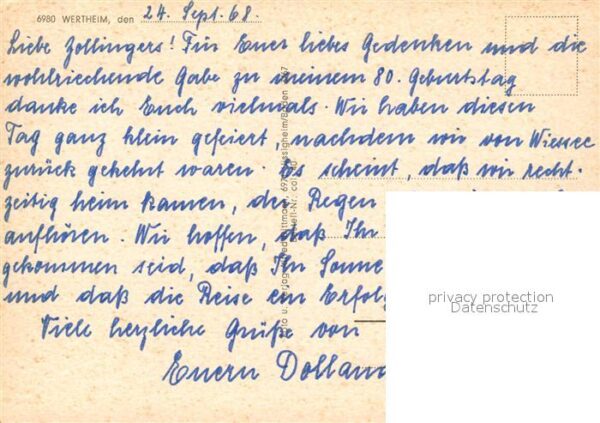 6980 WERTHEIM, den 24. Sept. 68.
Liebe Zollingers! Für Euer liebes Gedenken und die
wohlriechende Gabe zu meinem 80. Geburtstag
danke ich Euch vielmals. Wir haben diesen
Tag ganz klein gefeiert, nachdem wir von Wiessee
zurück gekehrt waren. Es scheint, daß wir recht-
zeitig heim kamen, der Regen
aufhören. Wir hoffen, daß Ihr
gekommen seid, daß Ihr Sonne
und daß die Reise ein Erfolg
Viele herzliche Grüße von
Euern Dolland
privacy protection
Datenschutz